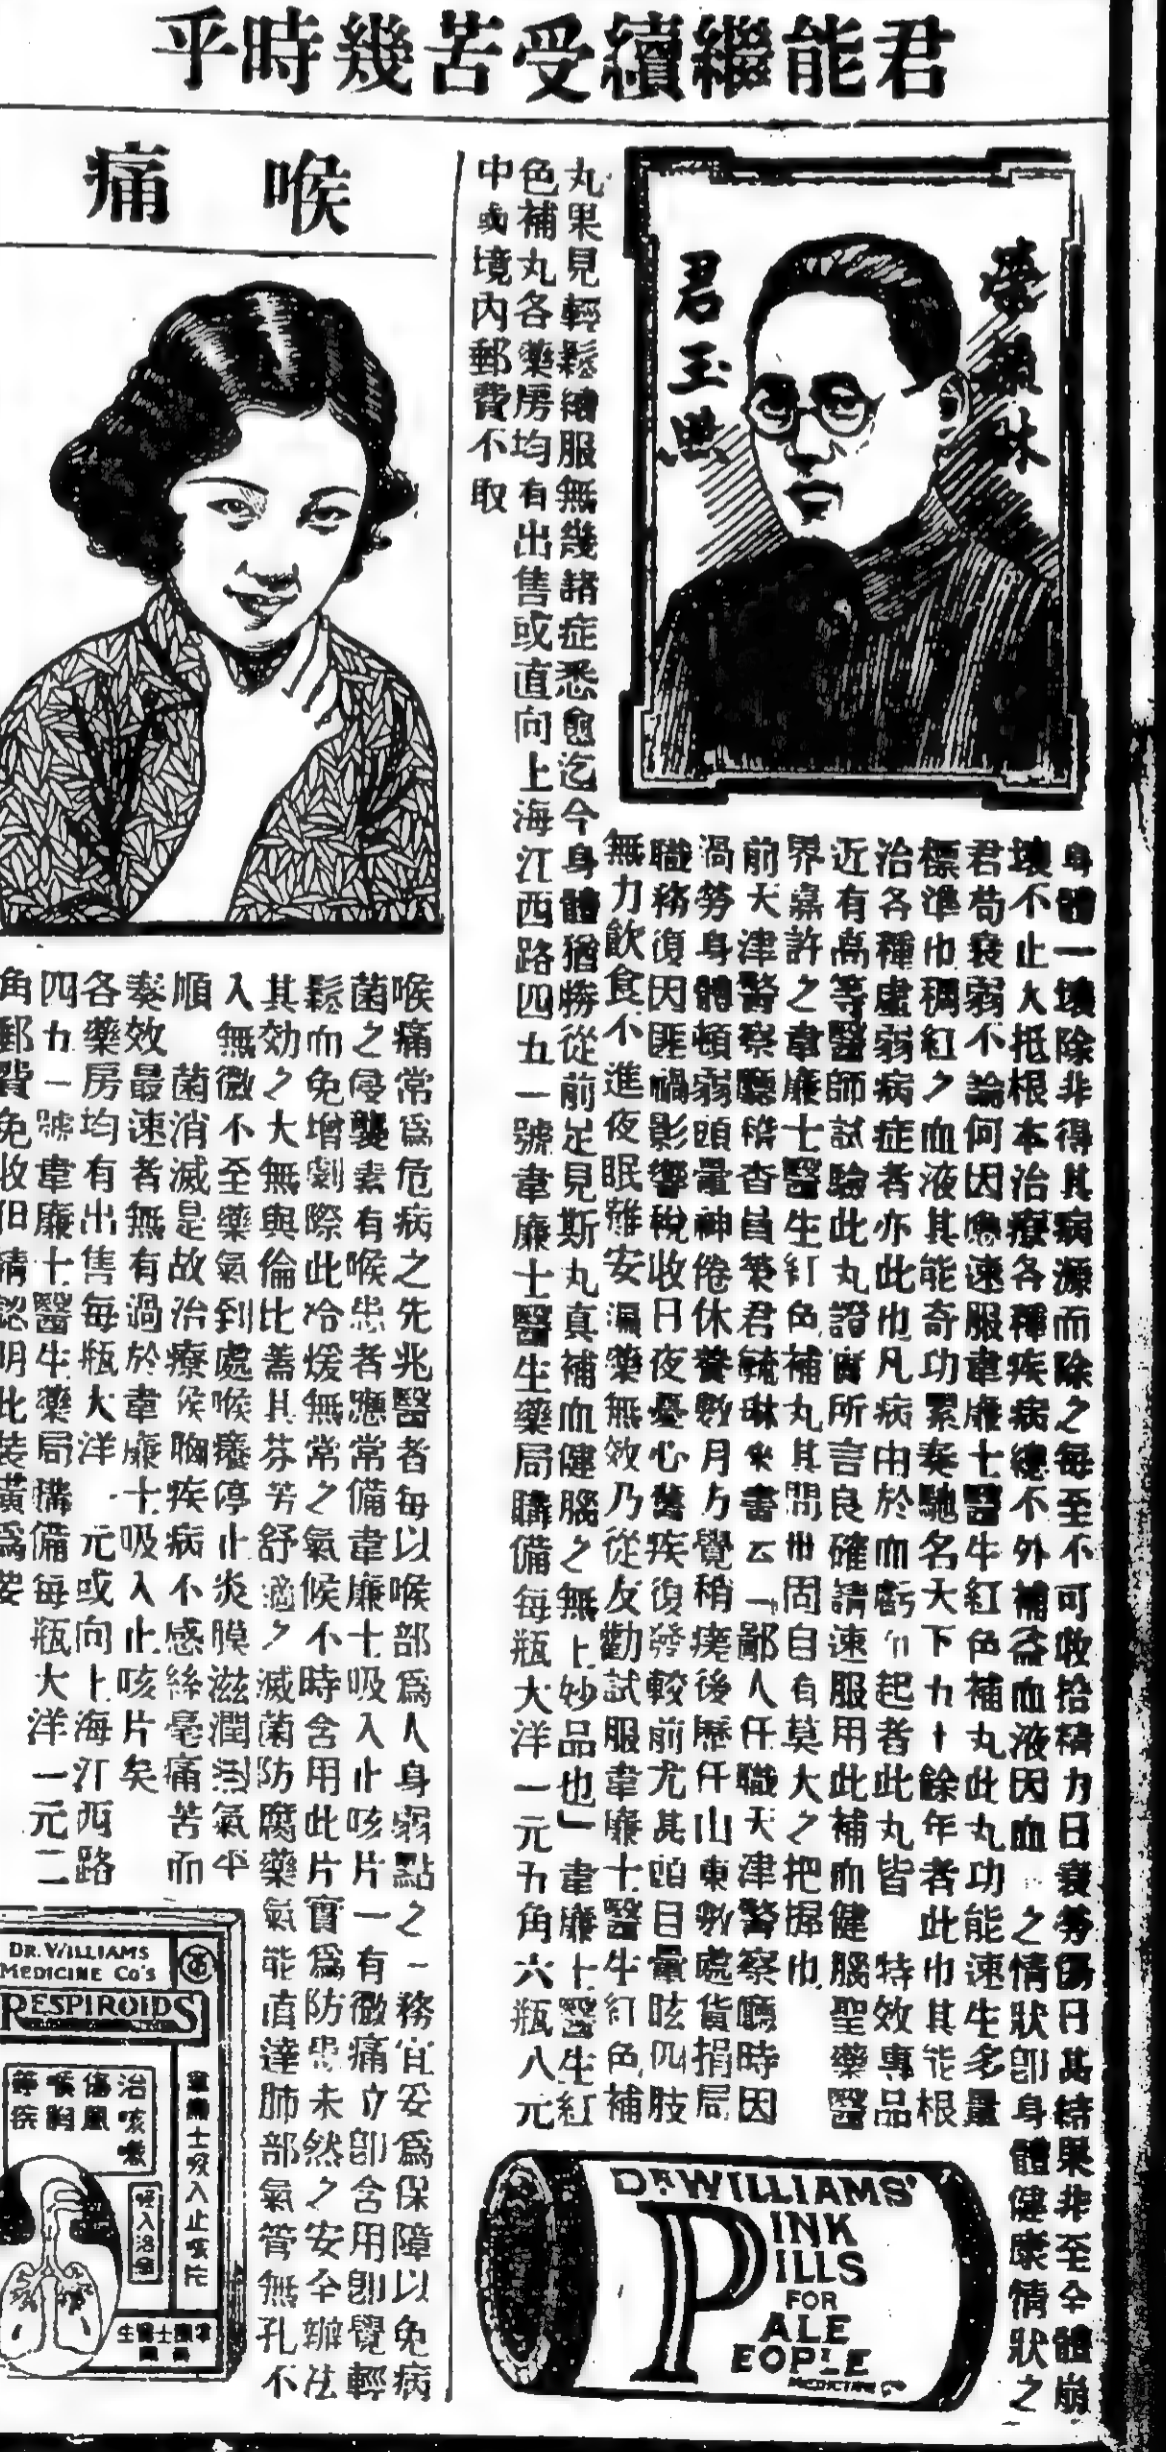 君能繼續受苦幾時乎
君玉照
身體一壞除非得其病源而除之每至不可收拾精力日衰勞傷日甚結果非至全體崩
壞不止大抵根本治療各種疾病總不外補益血液因血 之情狀卽身體健康情狀之
君苟衰弱不論何因急速服韋廉士醫生紅色補丸此丸功能速生多量
標準也稠紅之血液其能奇功累奏馳名天下九十餘年者此也其能根
治各種虛弱病症者亦此也凡病由於血虧而起者此丸皆 特效專品
近有高等醫師試驗此丸證實所言良確請速服用此補血健腦聖藥醫
界嘉許之韋廉士醫生紅色補丸其間世固自有莫大之把握也
前天津警察廳稽查員 君毓琳來書云「鄙人任職天津警察廳時因
過勞身體頓弱頭暈神倦休養數月方覺稍痊後歷任山東數處貨捐局
職務復因匪禍影響稅收日夜憂心舊疾復發較前尤甚頭目暈眩四肢
無力飲食不進夜眠難安 藥無效乃從友勸試服韋廉士醫生紅色補
丸果見輕鬆續服無幾諸症悉愈迄今身體猶勝從前足見斯丸真補血健腦之無上妙品也」韋廉士醫生紅
色補丸各藥房均有出售或直向上海江西路四五一號韋廉士醫生藥局購備每瓶大洋一元五角六瓶八元
中 境內郵費不取
DR. WILLIAMS'
PINK
PILLS
FOR
PALE
PEOPLE
MEDICINE Co
喉痛
喉痛常爲危病之先兆醫者每以喉部爲人身弱點之一務宜妥爲保障以免病
菌之侵襲素有喉患者應常備韋廉士吸入止咳片一有微痛立卽含用卽覺輕
鬆而免增劇際此冷煖無常之氣候不時含用此片實爲防患未然之安全辦法
其効之大無與倫比蓋其芬芳舒適之滅菌防腐藥氣能直達肺部氣管無孔不
入無微不至藥氣到處喉癢停止炎膜滋潤 氣平
順 菌消滅是故治療喉胸疾病不感絲毫痛苦而
奏效最速者無有過於韋廉士吸入止咳片矣
各藥房均有出售每瓶大洋 元或向上海江西路
四五一號韋廉士醫生藥局購備每瓶大洋一元二
角郵費免收但請認明此裝璜爲要
DR. WILLIAMS
MEDICINE Co'S
RESPIROIDS
韋廉士吸入止咳片
治咳嗽
傷風
喉胸
等疾